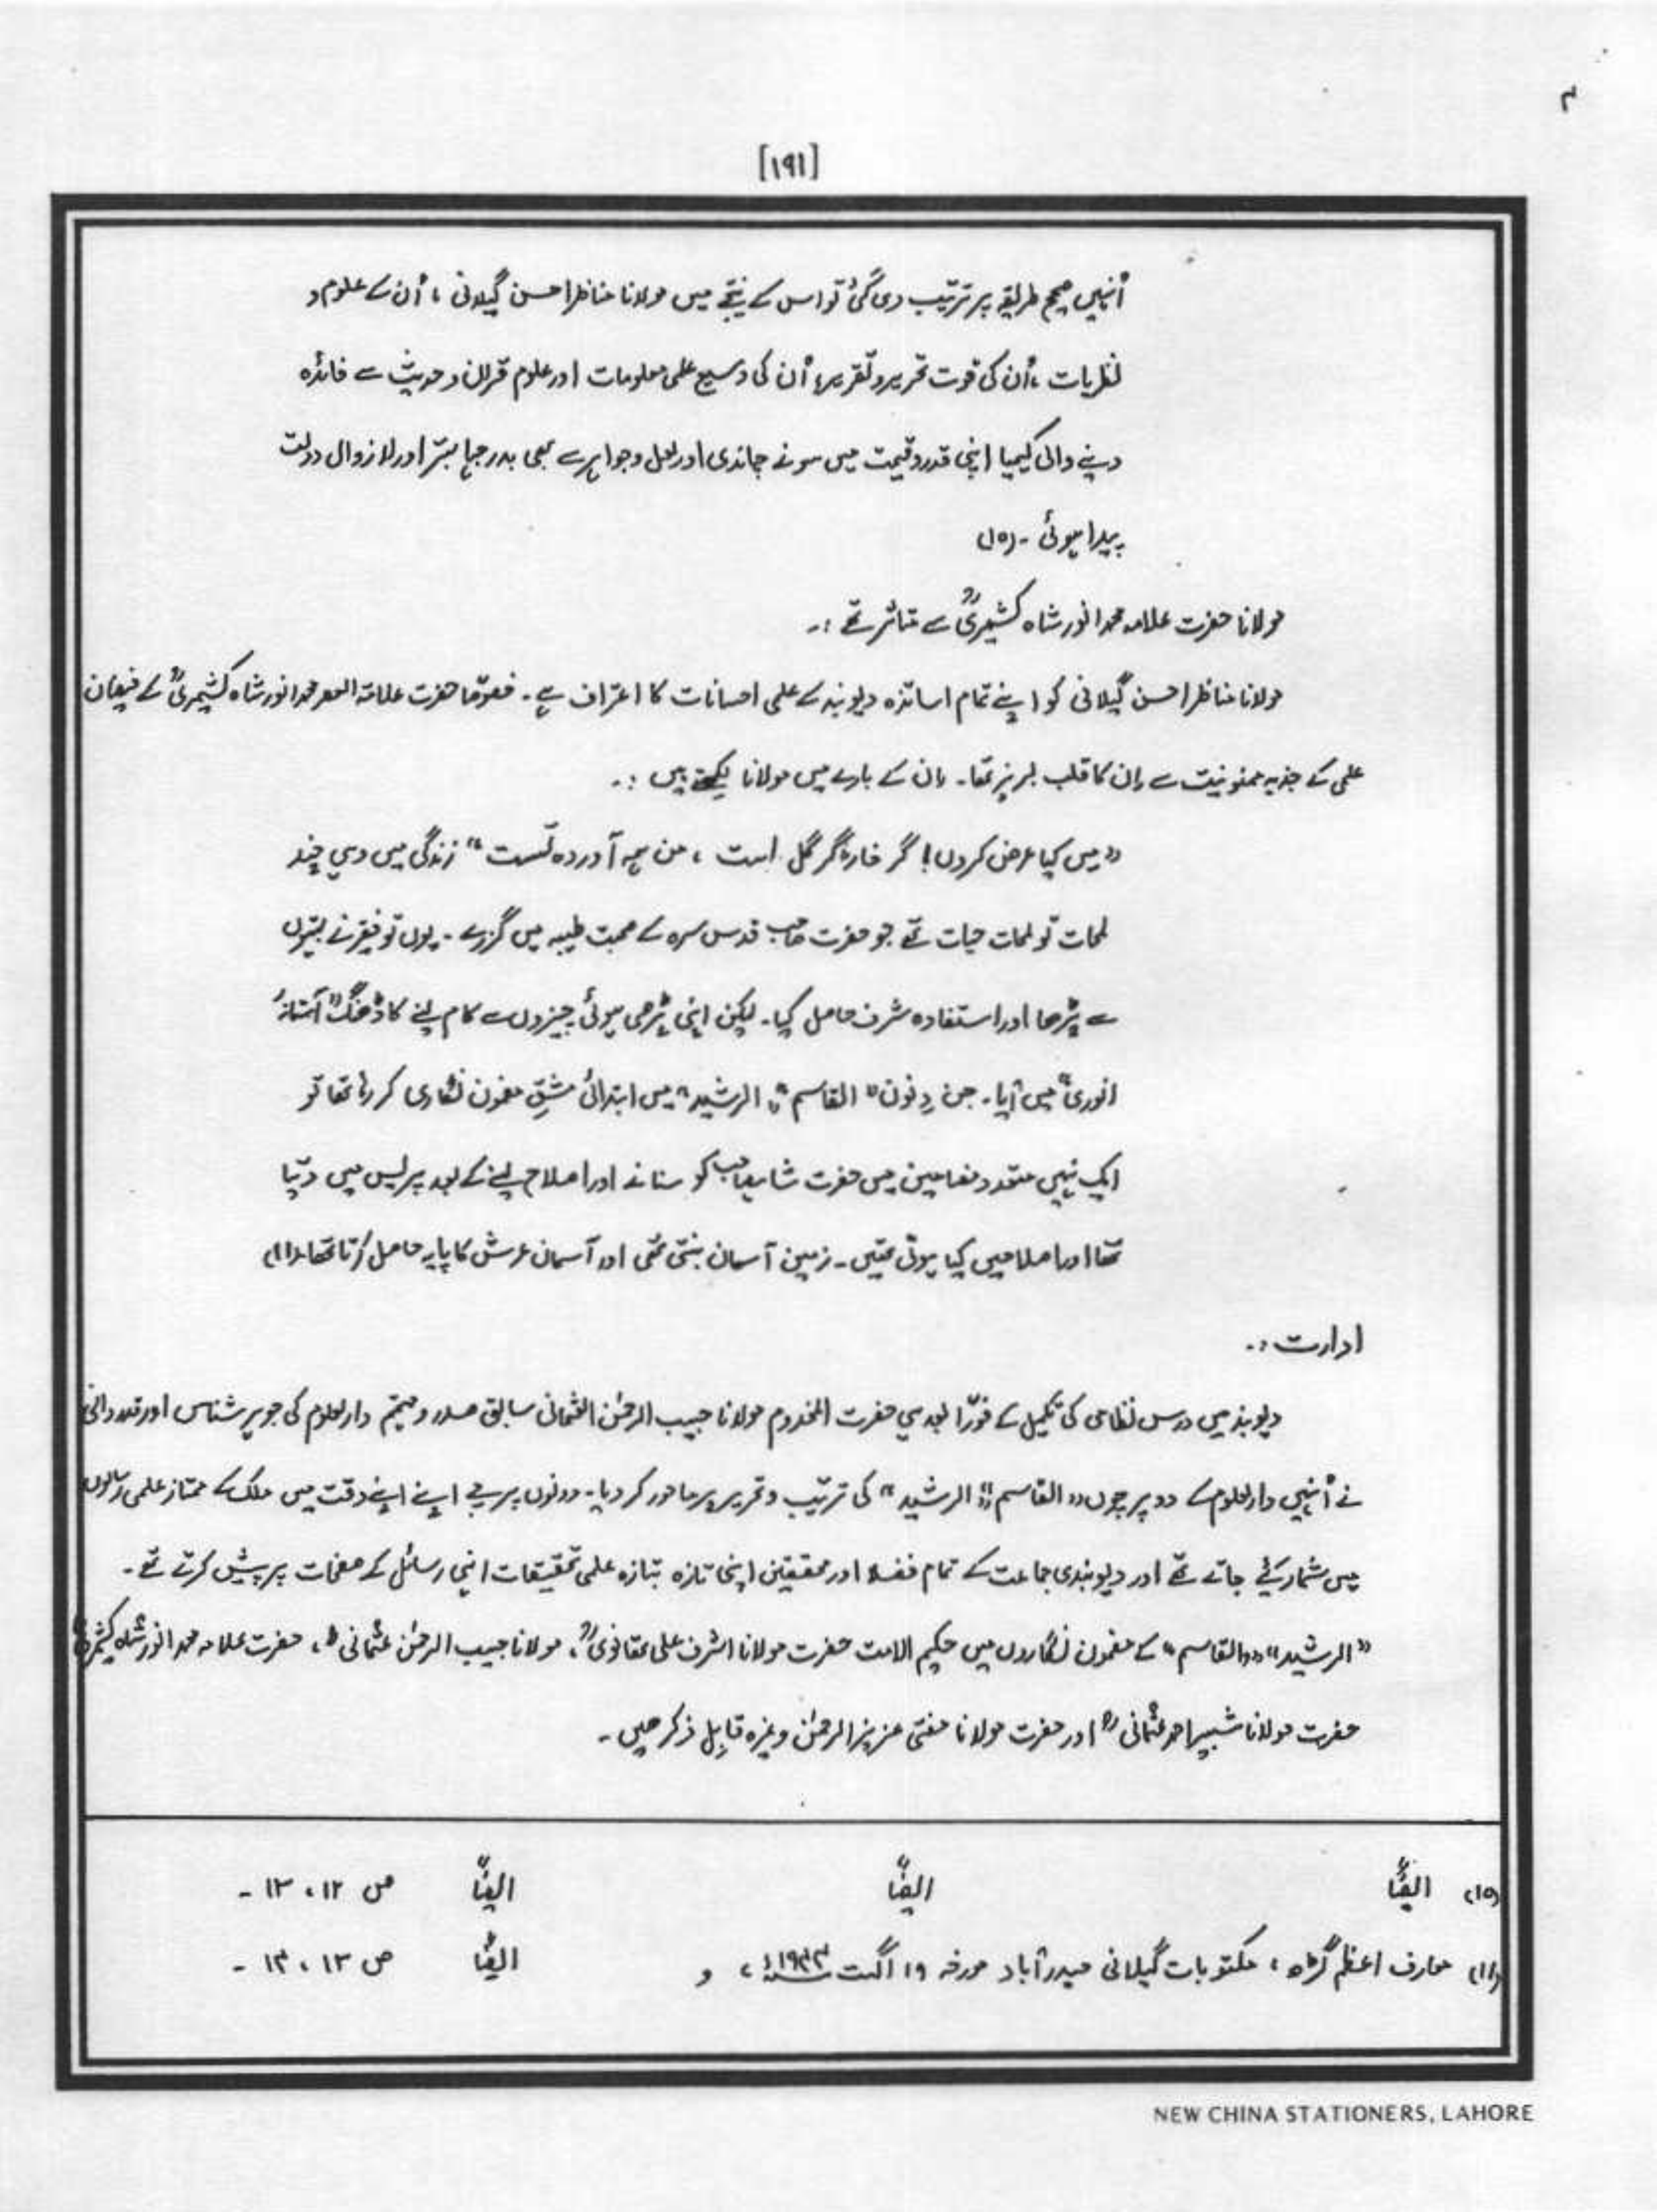 م
[۱۹۱]
اُنہیں صحیح طریقہ پر ترتیب دی گئی تو اس کے نتیجے میں مولانا مناظر احسن گیلانی ، اُن کے علوم و
نظریات ، اُن کی قوت تحریر و تقریر ، اُن کی وسیع علمی معلومات اور علوم قرآن و حدیث سے فائدہ
دینے والی کیمیا اپنی قدر و قیمت میں سونے چاندی اور لعل و جواہر سے بھی بدرجہا بہتر اور لازوال دولت
پیدا ہوئی ۔ (۱۵)
مولانا حضرت علامہ محمد انور شاہ کشمیریؒ سے متاثر تھے :۔
مولانا مناظر احسن گیلانی کو اپنے تمام اساتذہ دیوبند کے علمی احسانات کا اعتراف ہے ۔ خصوصًا حضرت علامۃ العصر محمد انور شاہ کشمیریؒ کے فیضان
علمی کے جذبہ ممنونیت سے اِن کا قلب لبریز تھا ۔ اِن کے بارے میں مولانا لکھتے ہیں :۔
”میں کیا عرض کروں! گر خار و گر گل است ، من ہمہ آوردہ تست“ زندگی میں وہی چند
لمحات تو لمحات حیات تھے جو حضرت صاحب قدس سرہ کے صحبت طیبہ میں گزرے ۔ یوں تو فقیر نے بہتیروں
سے پڑھا اور استفادہ شرف حاصل کیا ۔ لیکن اپنی پڑھی ہوئی چیزوں سے کام لینے کا ڈھنگ ”آستانۂ
انوری“ میں آیا ۔ جن دِنوں ”القاسم“ ”الرشید“ میں ابتدائی مشقِ مضمون نگاری کر رہا تھا تو
ایک نہیں متعدد مضامین میں حضرت شاہ صاحب کو سنانے اور اصلاح لینے کے بعد پریس میں دیتا
تھا اور اصلاحیں کیا ہوتی تھیں ۔ زمین آسمان بنتی تھی اور آسمان عرش کا پایہ حاصل کرتا تھا ۔ (۱۱)
ادارت :۔
دیوبند میں درس نظامی کی تکمیل کے فورًا بعد ہی حضرت المخدوم مولانا حبیب الرحمٰن العثمانی سابق صدر و مہتمم دارلعلوم کی جوہر شناس اور قدر دانی
نے اُنہیں دارلعلوم کے دو پرچوں ”القاسم“ ”الرشید“ کی ترتیب و تحریر پر مامور کر دیا ۔ دونوں پرچے اپنے اپنے وقت میں ملک کے ممتاز علمی رسالوں
میں شمار کئے جاتے تھے اور دیوبندی جماعت کے تمام فضلا اور محققین اپنی تازہ بتازہ علمی تحقیقات انہی رسائل کے صفحات پر پیش کرتے تھے ۔
”الرشید“ ”القاسم“ کے مضمون نگاروں میں حکیم الامت حضرت مولانا اشرف علی تھانویؒ ، مولانا حبیب الرحمٰن عثمانیؒ ، حضرت علامہ محمد انور شاہ کشمیریؒ
حضرت مولانا شبیر احمد عثمانیؒ اور حضرت مولانا مفتی عزیز الرحمٰن وغیرہ قابِل ذکر ہیں ۔
(۱۵) ایضًا ایضًا ایضًا ص ۱۲ ، ۱۳ ۔
(۱۱) معارف اعظم گڑھ ، مکتوبات گیلانی حیدرآباد مورخہ ۱۹ اگست ، و ایضًا ص ۱۳ ، ۱۴ ۔
NEW CHINA STATIONERS, LAHORE